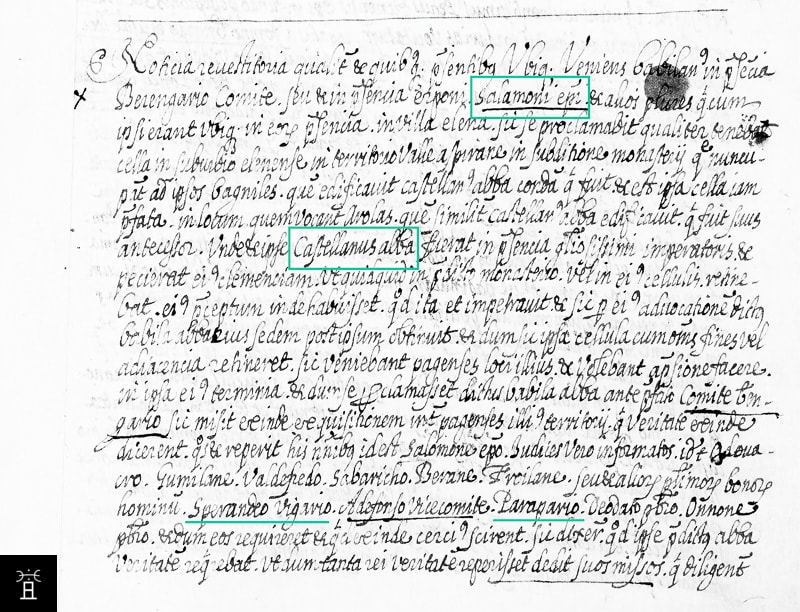 Noticia revestitoria qualit & quib9. psentibq Vbiq. Veniens babilan9 in psecia
Berengario Comite. seu & in psencia domni. Salamoni epi. & alios plures q cum
ipsi erant Vbiq. in eoꝝ psencia. in villa elena. sic se proclamavit qualiter
cella in suburbio elenense in territorio Valle aspirane in subditione monasterij q nuncu-
pat ad ipsos bagniles. que edificavit castellan9 abba condã q fuit & est ipsa cella iam
pfata. in locum quem vocant Arolas. que similit Castellan9 abba edificavit. q fuit suus
antecessor. Vnde & ipse Castellanus abba in psencia gliosissimi imperatoris &
pecierat ei9 clemenciam in monasterio. vel in ei9 cellulis. retine-
bat. ei9 pceptum inde habuisset. qd ita et impetravit & sic p ei9 advocatione dictq
babila abba eius sedem post ipsum obtinuit & dum sic ipsa cellula cum omīs fines vel
adiacencia retineret. sic veniebant pagenses loci illius. & volebant apsione facere.
in ipsa ei9 terminia. & dum se proclamasset dictus babila abba ante pfato Comite ben-
gario sic misit exinde exquisitionem int pagenses illi9 territorij. q veritate exinde
dicerent. qs & reperit his nnibq id est Salomone epo. Iudices vero informatos. id ē
cro. Gumilane. Valdefredo. Sabaricho. Berane. Froilane. seu & alioꝝ plimoꝝ bonoꝝ
hominū. Sperandeo Vigario. Adefonso Vicecomite. Parapario. Deodato pbro. Vnnone
pbro. & dum eos requireret & q exinde cerci9 scirent. sic dixer. qd ipse pdictq abba
veritatē reqrebat. Vt dum tanta rei veritatē reperisset dedit suos missos. q diligent